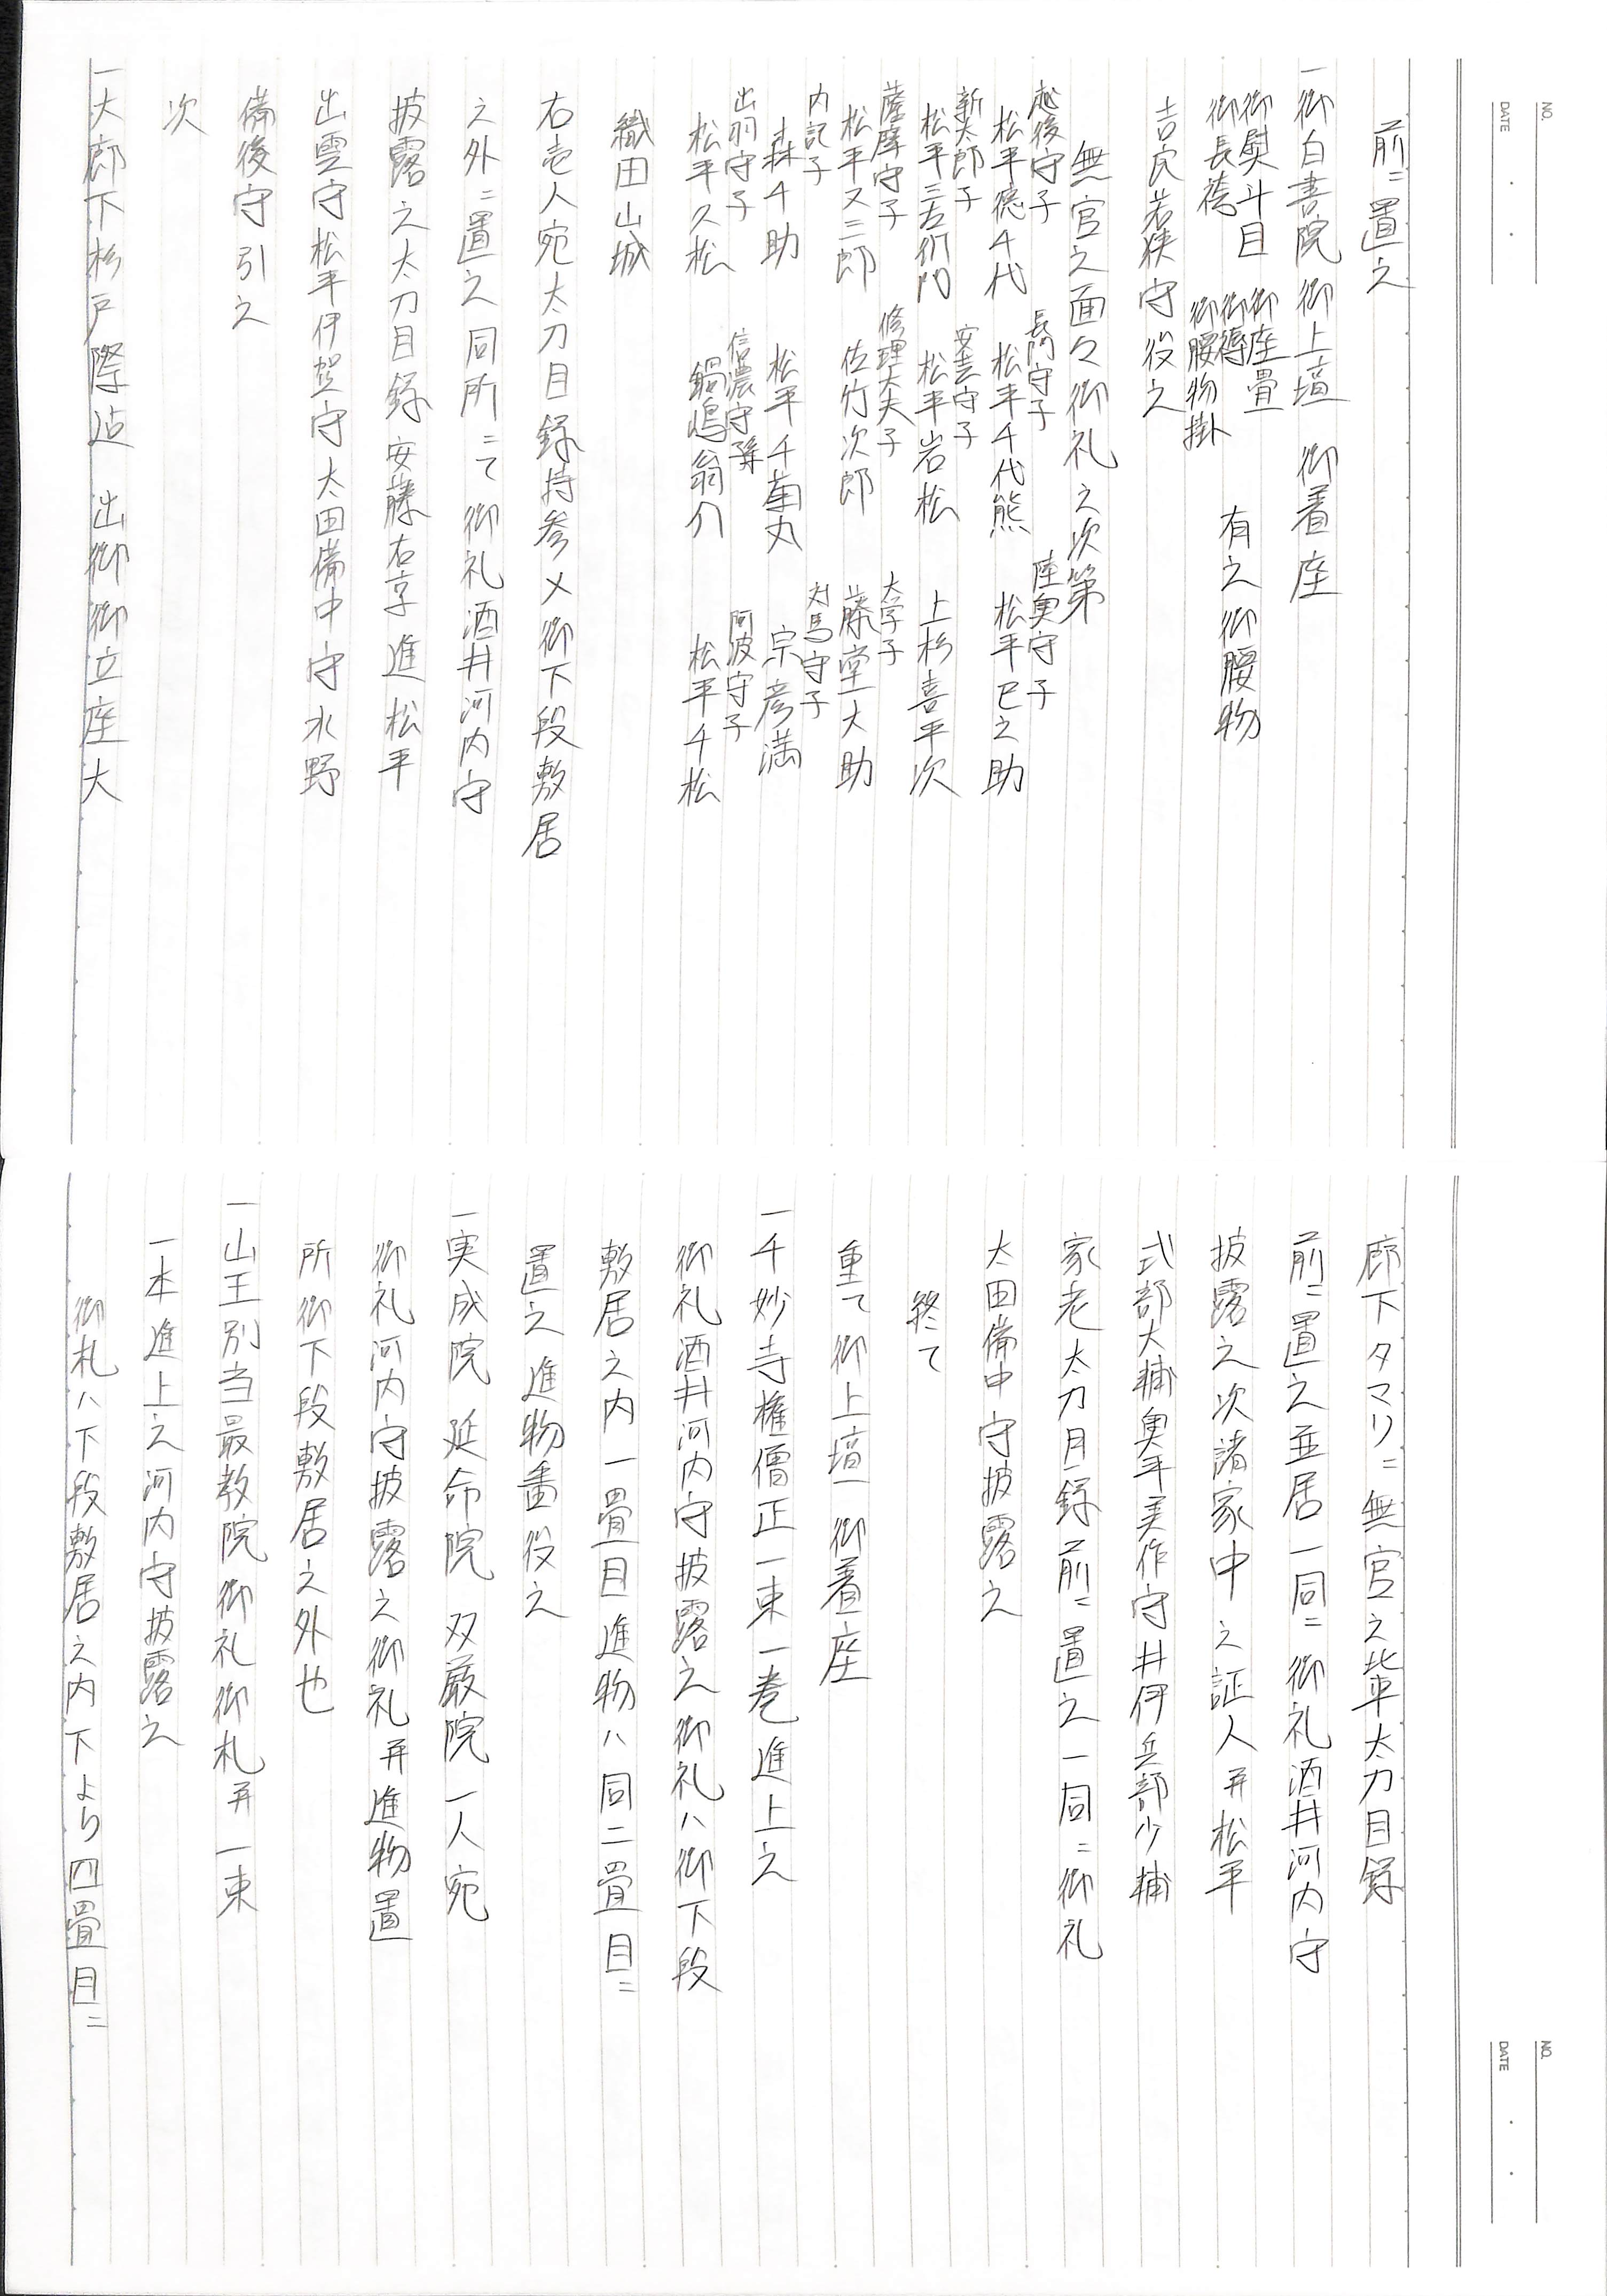 NO.
DATE
前ニ置之
一御白書院御上壇 御着座
御熨斗目 御座畳
御長袴 御褥 有之御腰物
御腰物掛
吉良若狭守役之
無官之面々御礼之次第
越後守子 長門守子 陸奥守子
松平徳千代 松平千代熊 松平巳之助
新太郎子 安芸守子
松平三左衛門 松平岩松 上杉喜平次
薩摩守子 修理大夫子 大学子
松平又三郎 佐竹次郎 藤堂大助
内記子 対馬守子
森千助 松平千菊丸 宗彦満
出羽守子 信濃守孫 阿波守子
松平久松 鍋嶋翁介 松平千松
織田山城
右壱人宛太刀目録持参〆御下段敷居
之外ニ置之同所ニて御礼酒井河内守
披露之太刀目録安藤右京進松平
出雲守松平伊賀守太田備中守水野
備後守引之
次
一大廊下杉戸際迠 出御御立座大
廊下タマリニ無官之輩太刀目録
前ニ置之並居一同ニ御礼酒井河内守
披露之次諸家中之証人并松平
式部大輔奥平美作守井伊兵部少輔
家老太刀目録前ニ置之一同ニ御礼
太田備中守披露之
終て
重て御上壇御着座
一千妙寺権僧正一束一巻進上之
御礼酒井河内守披露之御礼ハ御下段
敷居之内一畳目進物ハ同二畳目ニ
置之進物番役之
一実成院 延命院 双厳院一人宛
御礼河内守披露之御礼并進物置
所御下段敷居之外也
一山王別当最教院御礼御札并一束
一本進上之河内守披露之
御札ハ下段敷居之内下より四畳目ニ
NO.
DATE